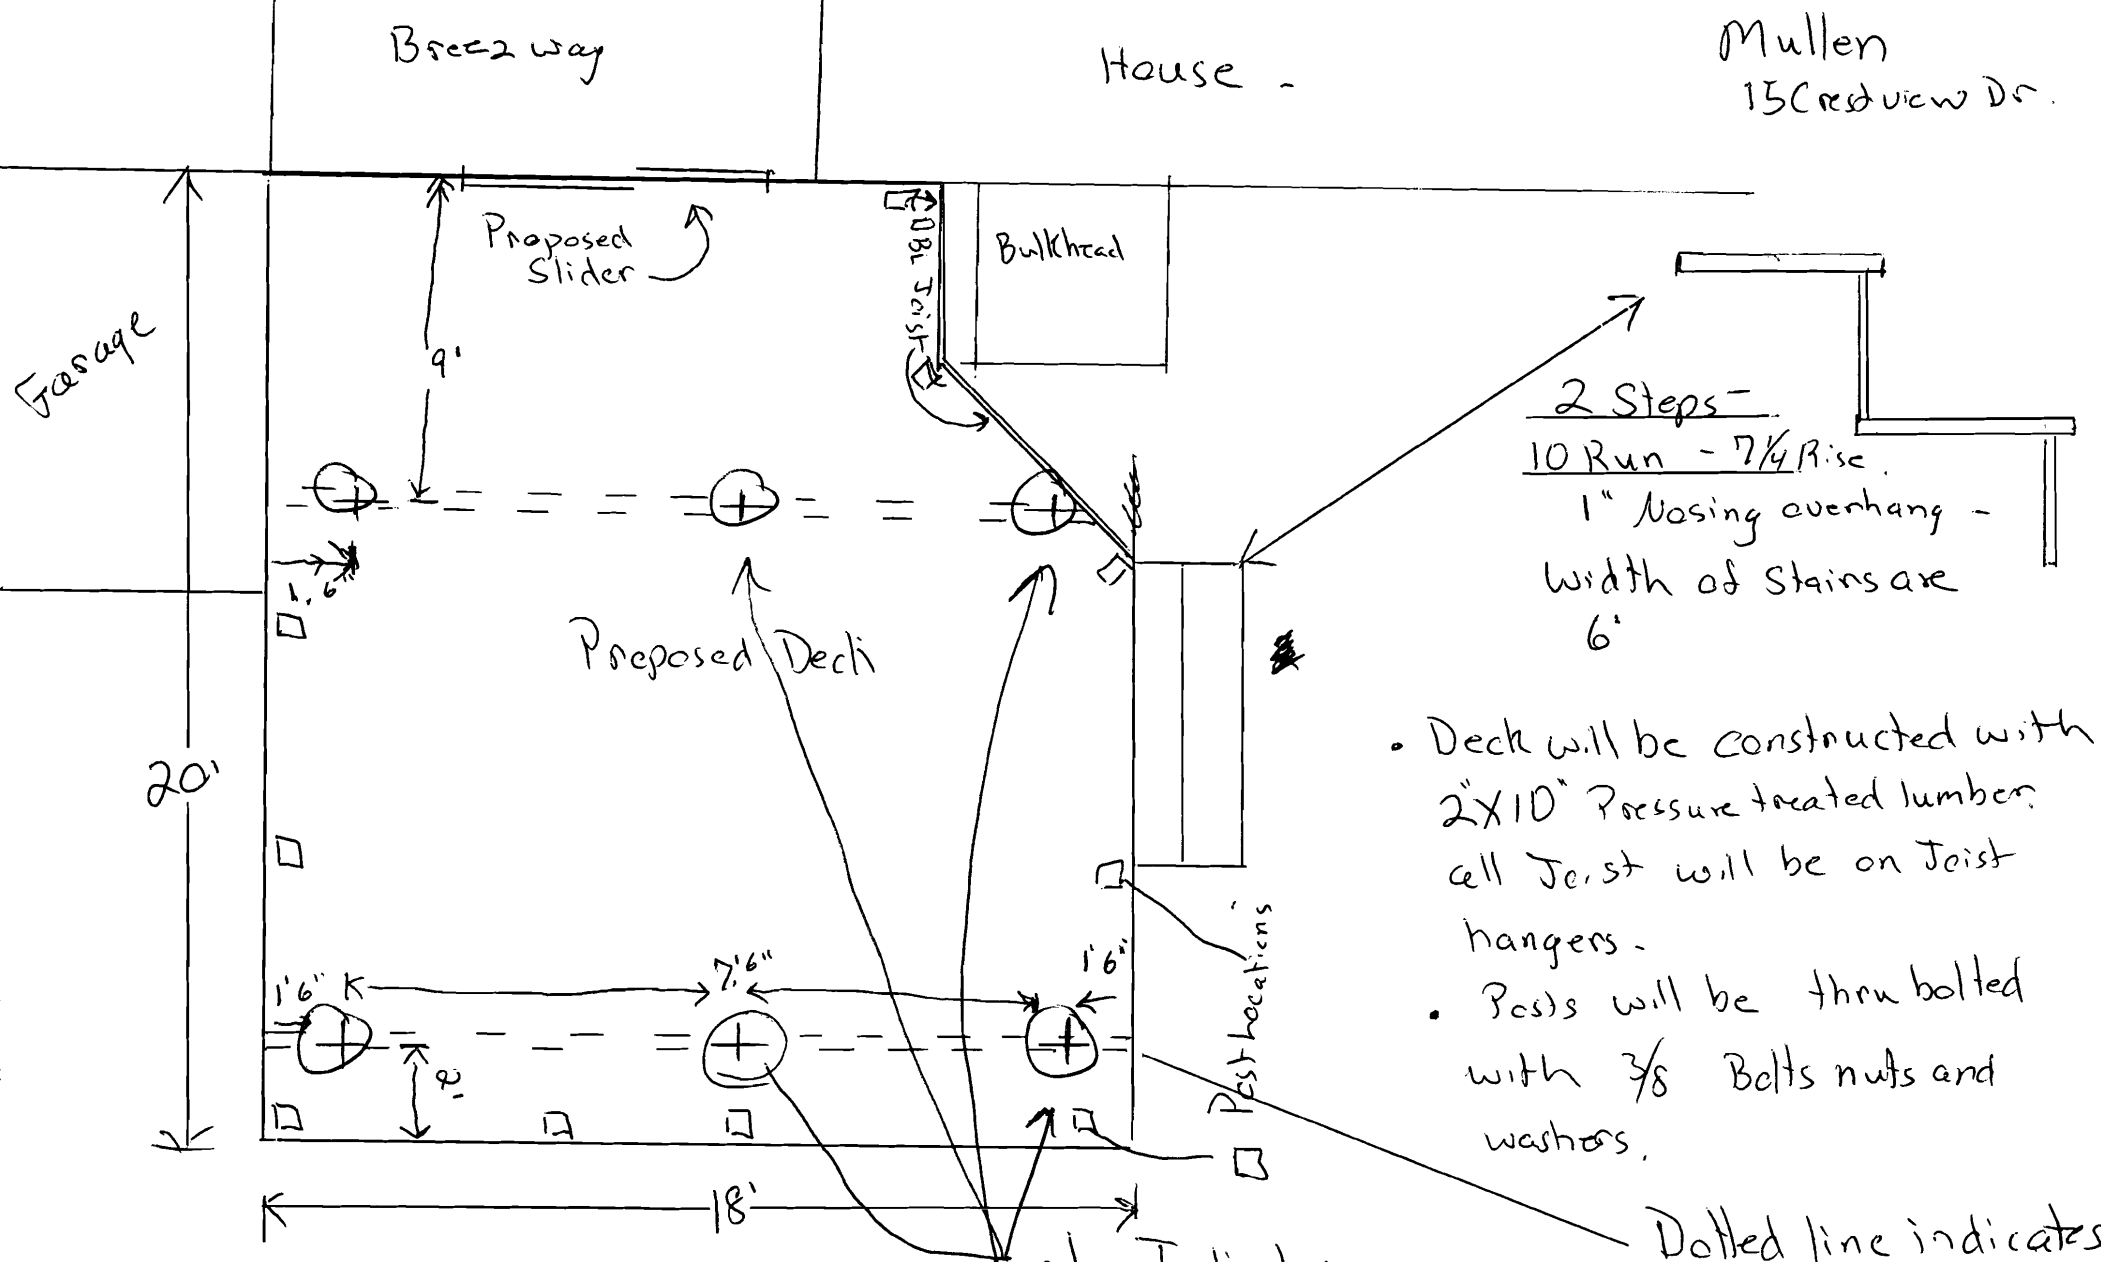 Breezway
House -
Mullen
15 Crestview Dr.
Proposed
Slider
DBL Joist
Bulkhead
Garage
9'
2 Steps-
10 Run - 7 1/4 Rise.
1" Nosing overhang -
width of Stairs are
6'
1'6"
Proposed Deck
20'
• Deck will be constructed with
2"X10" Pressure treated lumber.
all Joist will be on Joist
hangers.
• Posts will be thru bolted
with 3/8 Bolts nuts and
washers.
1'6"
7'6"
1'6"
Post Locations
2'
18'
Dotted line indicates